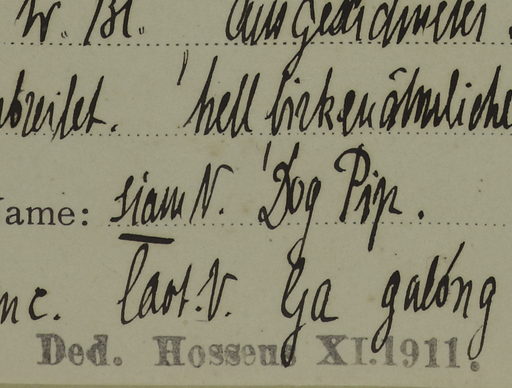 W. Bl. ausgezeichneter
breitet. hell birkenähnliche
Name: siam V. Dog Pip.
nc. Laot. V. Ga galóng
Ded. Hosseus XI.1911.